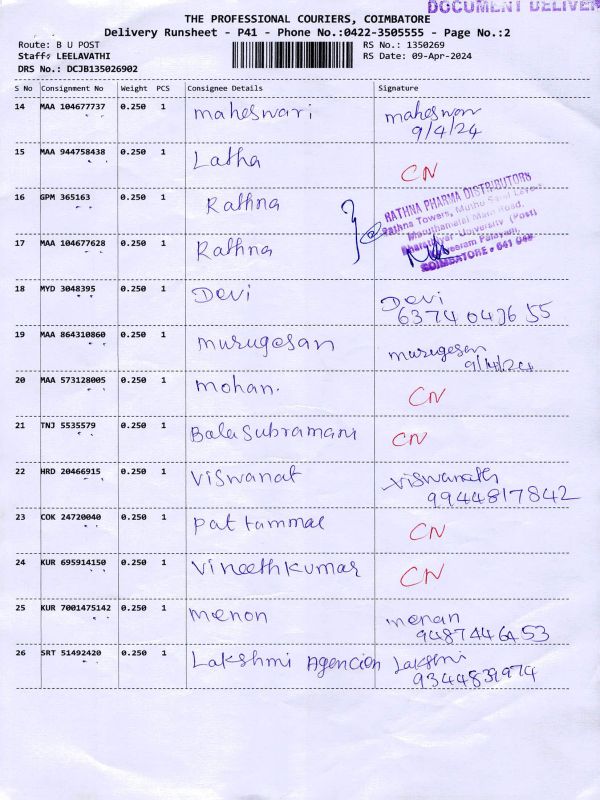 DOCUMENT DELIVER
THE PROFESSIONAL COURIERS, COIMBATORE
Delivery Runsheet - P41 - Phone No.:0422-3505555 - Page No.:2
Route: B U POST RS No.: 1350269
Staff: LEELAVATHI RS Date: 09-Apr-2024
DRS No.: DCJB135026902
S No Consignment No Weight PCS Consignee Details Signature
14 MAA 104677737 0.250 1 maheswari maheswari
9/4/24
15 MAA 944758438 0.250 1 Latha CN
16 GPM 365163 0.250 1 Rathna
RATHNA PHARMA DISTRIBUTORS
Rathna Towers,
Maruthamalai Main Road,
17 MAA 104677628 0.250 1 Rathna Bharathiyar University (Post)
COIMBATORE - 641 046
18 MYD 3048395 0.250 1 Devi Devi
19 MAA 864310860 0.250 1 murugesan murugesan
9/4/24
20 MAA 573128005 0.250 1 mohan. CN
21 TNJ 5535579 0.250 1 Balasubramani CN
22 HRD 20466915 0.250 1 Viswanat Viswanath
9944817842
23 COK 24720040 0.250 1 pattammal CN
24 KUR 695914150 0.250 1 Vineethkumar CN
25 KUR 7001475142 0.250 1 menon menan
9487446453
26 SRT 51492420 0.250 1 Lakshmi Agencies Lakshmi
9344839974